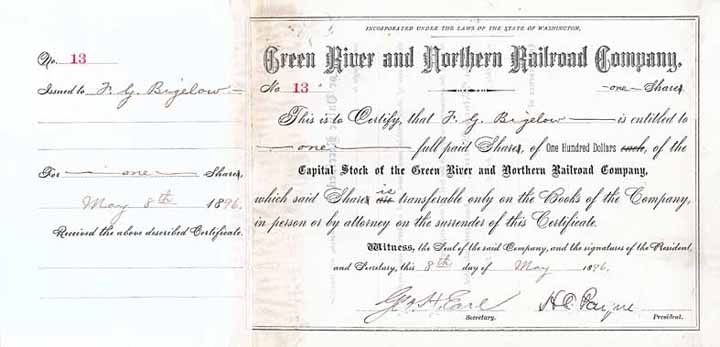 No. 13
Issued to F. G. Bigelow
For one Shares
May 8th 1896.
Received the above described Certificate.
INCORPORATED UNDER THE LAWS OF THE STATE OF WASHINGTON,
Green River and Northern Railroad Company.
No 13 one Shares
This is to Certify, that F. G. Bigelow is entitled to
one full paid Shares, of One Hundred Dollars each, of the
Capital Stock of the Green River and Northern Railroad Company,
which said Shares is are transferable only on the Books of the Company,
in person or by attorney on the surrender of this Certificate.
Witness, the Seal of the said Company, and the signatures of the President,
and Secretary, this 8th day of May 1896.
Geo. H. Earl H C Payne
Secretary. President.